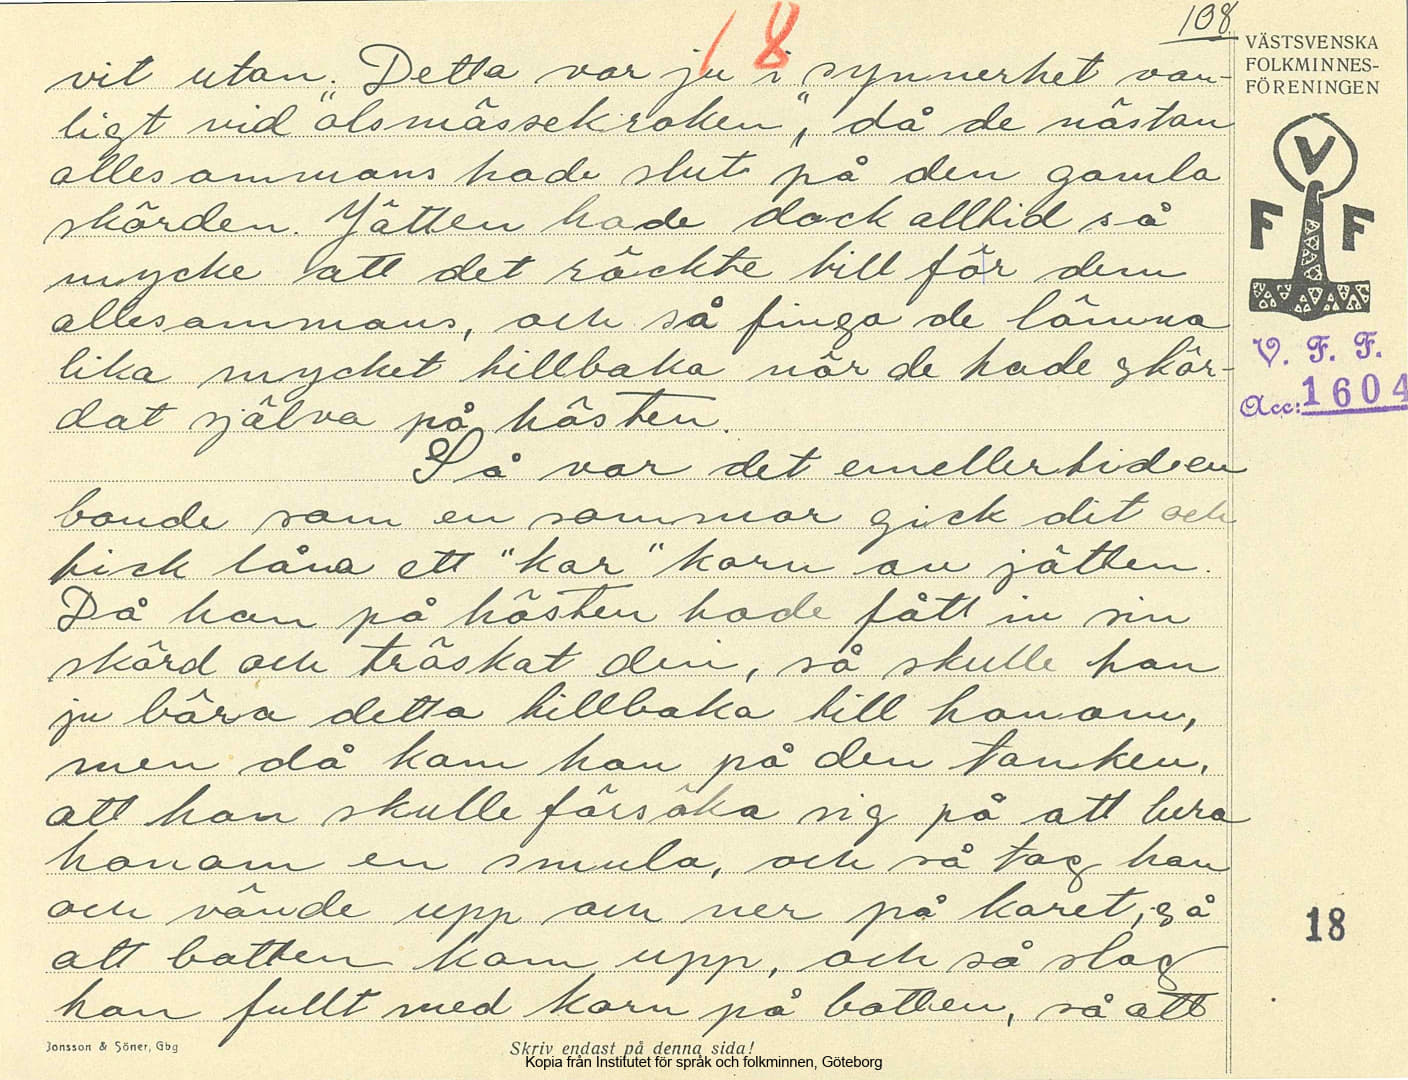 108
18
VÄSTSVENSKA
FOLKMINNES-
FÖRENINGEN
V
F F
V. F. F.
Acc: 1604
vit utan. Detta var ju i synnerhet van-
ligt vid "olsmässekroken", då de nästan
allesammans hade slut på den gamla
skörden. Jätten hade dock alltid så
mycke att det räckte till för dem
allesammans, och så fingo de lämna
lika mycket tillbaka när de hade skör-
dat själva på hösten.
Så var det emellertid en
bonde som en sommar gick dit och
fick låna ett "kar" korn av jätten.
Då han på hösten hade fått in sin
skörd och tröskat den, så skulle han
ju bära detta tillbaka till honom,
men då kom han på den tanken,
att han skulle försöka sig på att lura
honom en smula, och så tog han
och vände upp och ner på karet, så
att botten kom upp, och så slog
han fullt med korn på botten, så att
18
Jonsson & Söner, Gbg
Skriv endast på denna sida!
Kopia från Institutet för språk och folkminnen, Göteborg